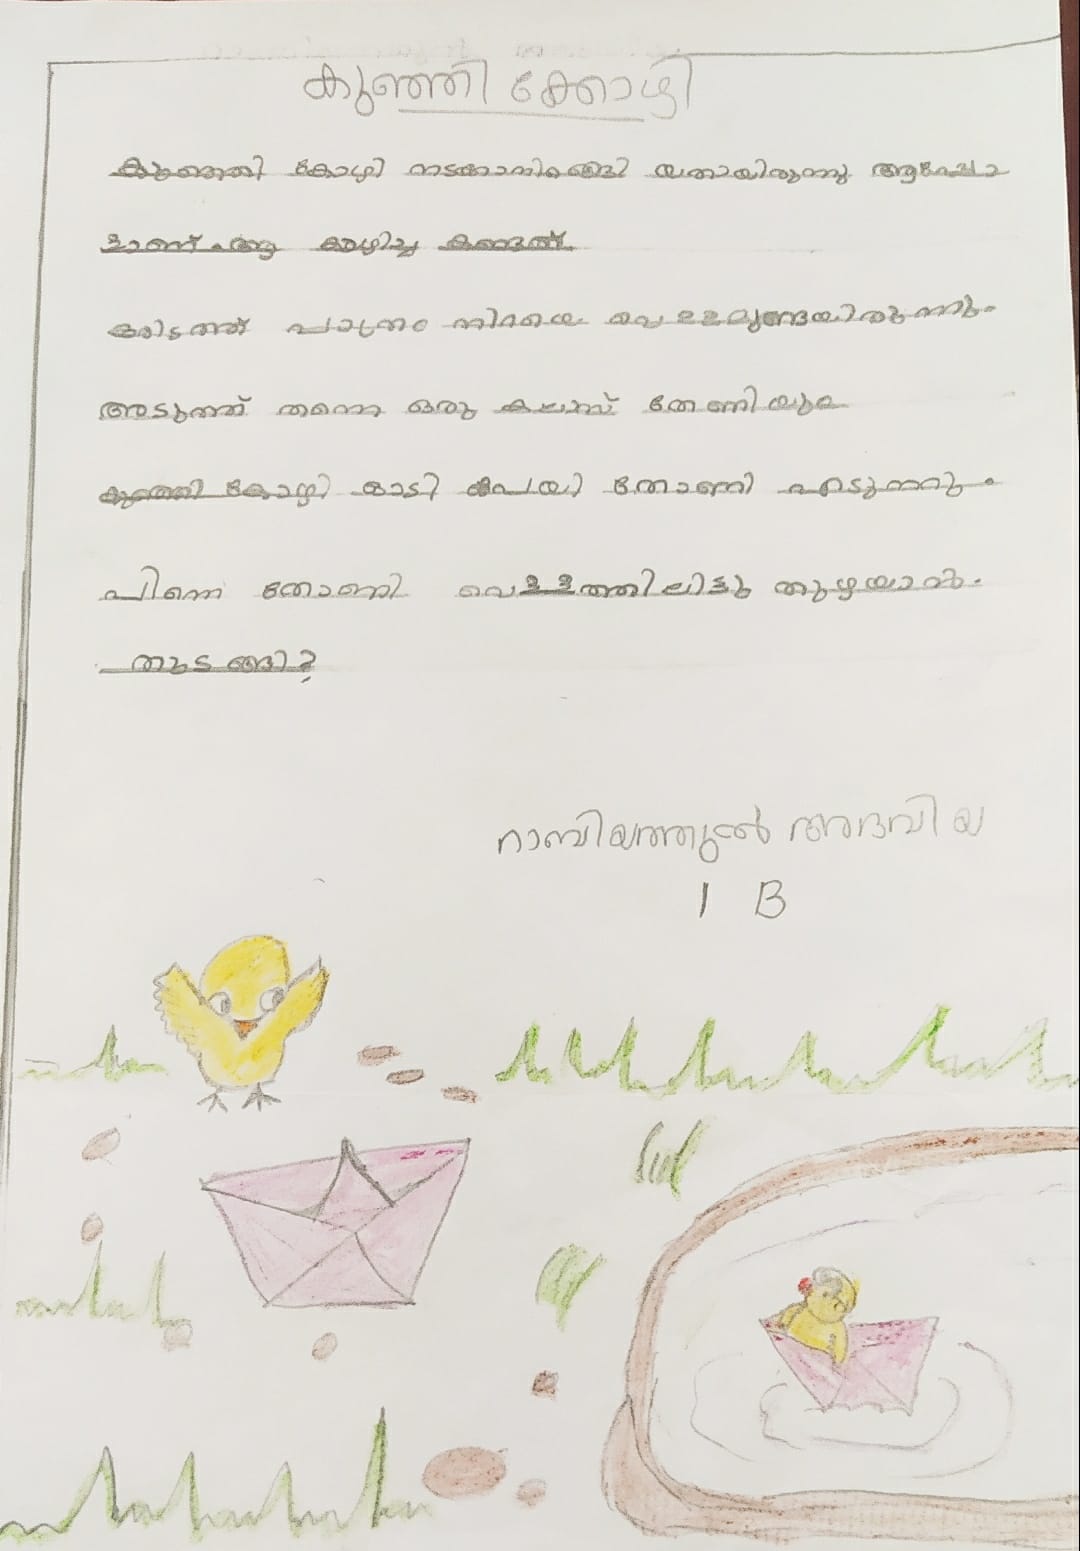 കുഞ്ഞി ക്കോഴി
കുഞ്ഞി കോഴി നടക്കാനിറങ്ങി യതായിരുന്നു അപ്പോ
ളാണ് ആ കാഴ്ച്ച കണ്ടത്
ഒരിടത്ത് പാത്രം നിറയെ വെള്ളമുണ്ടയിരുന്നു.
അടുത്ത് തന്നെ ഒരു കടലാസ് തോണിയും
കുഞ്ഞി കോഴി ഓടി പോയി തോണി എടുന്നു.
പിന്നെ തോണി വെള്ളത്തിലിട്ടു തുഴയാൻ
തുടങ്ങി?
റാബിയത്തുൽ അദവിയ
1 B